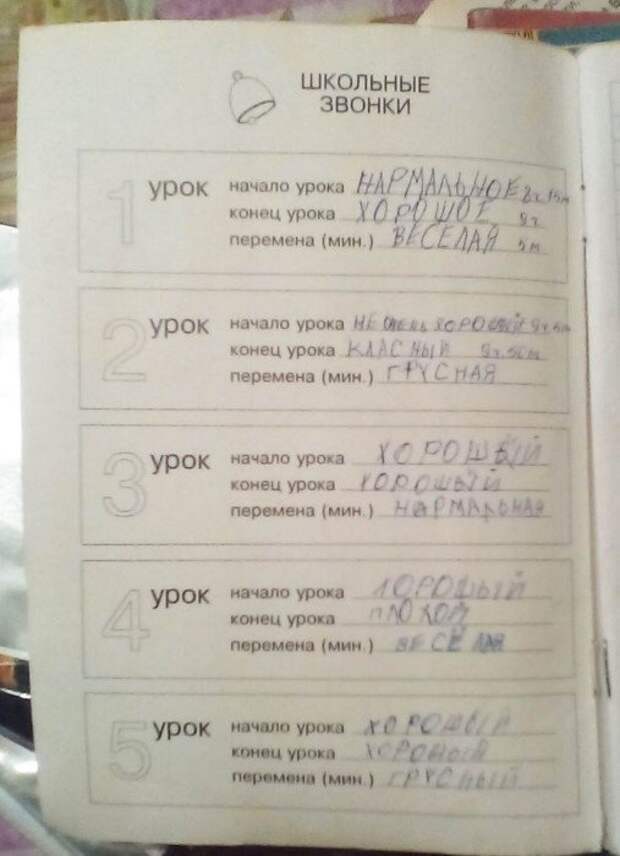 ШКОЛЬНЫЕ
ЗВОНКИ
1 урок
начало урока НАРМАЛЬНОЕ 8ч 15м
конец урока ХОРОШОЕ 9ч
перемена (мин.) ВЕСЕЛАЯ 5м
2 урок
начало урока НЕ ОЧЕНЬ ХОРОШИЙ 9ч 5м
конец урока КЛАСНЫЙ 9ч 50м
перемена (мин.) ГРУСНАЯ
3 урок
начало урока ХОРОШЫЙ
конец урока ХОРОШЫЙ
перемена (мин.) НАРМАЛЬНАЯ
4 урок
начало урока ХОРОШЫЙ
конец урока ПЛОХОМ
перемена (мин.) ВЕСЁЛАЯ
5 урок
начало урока ХОРОШЫЙ
конец урока ХОРОШЫЙ
перемена (мин.) ГРУСНЫЙ